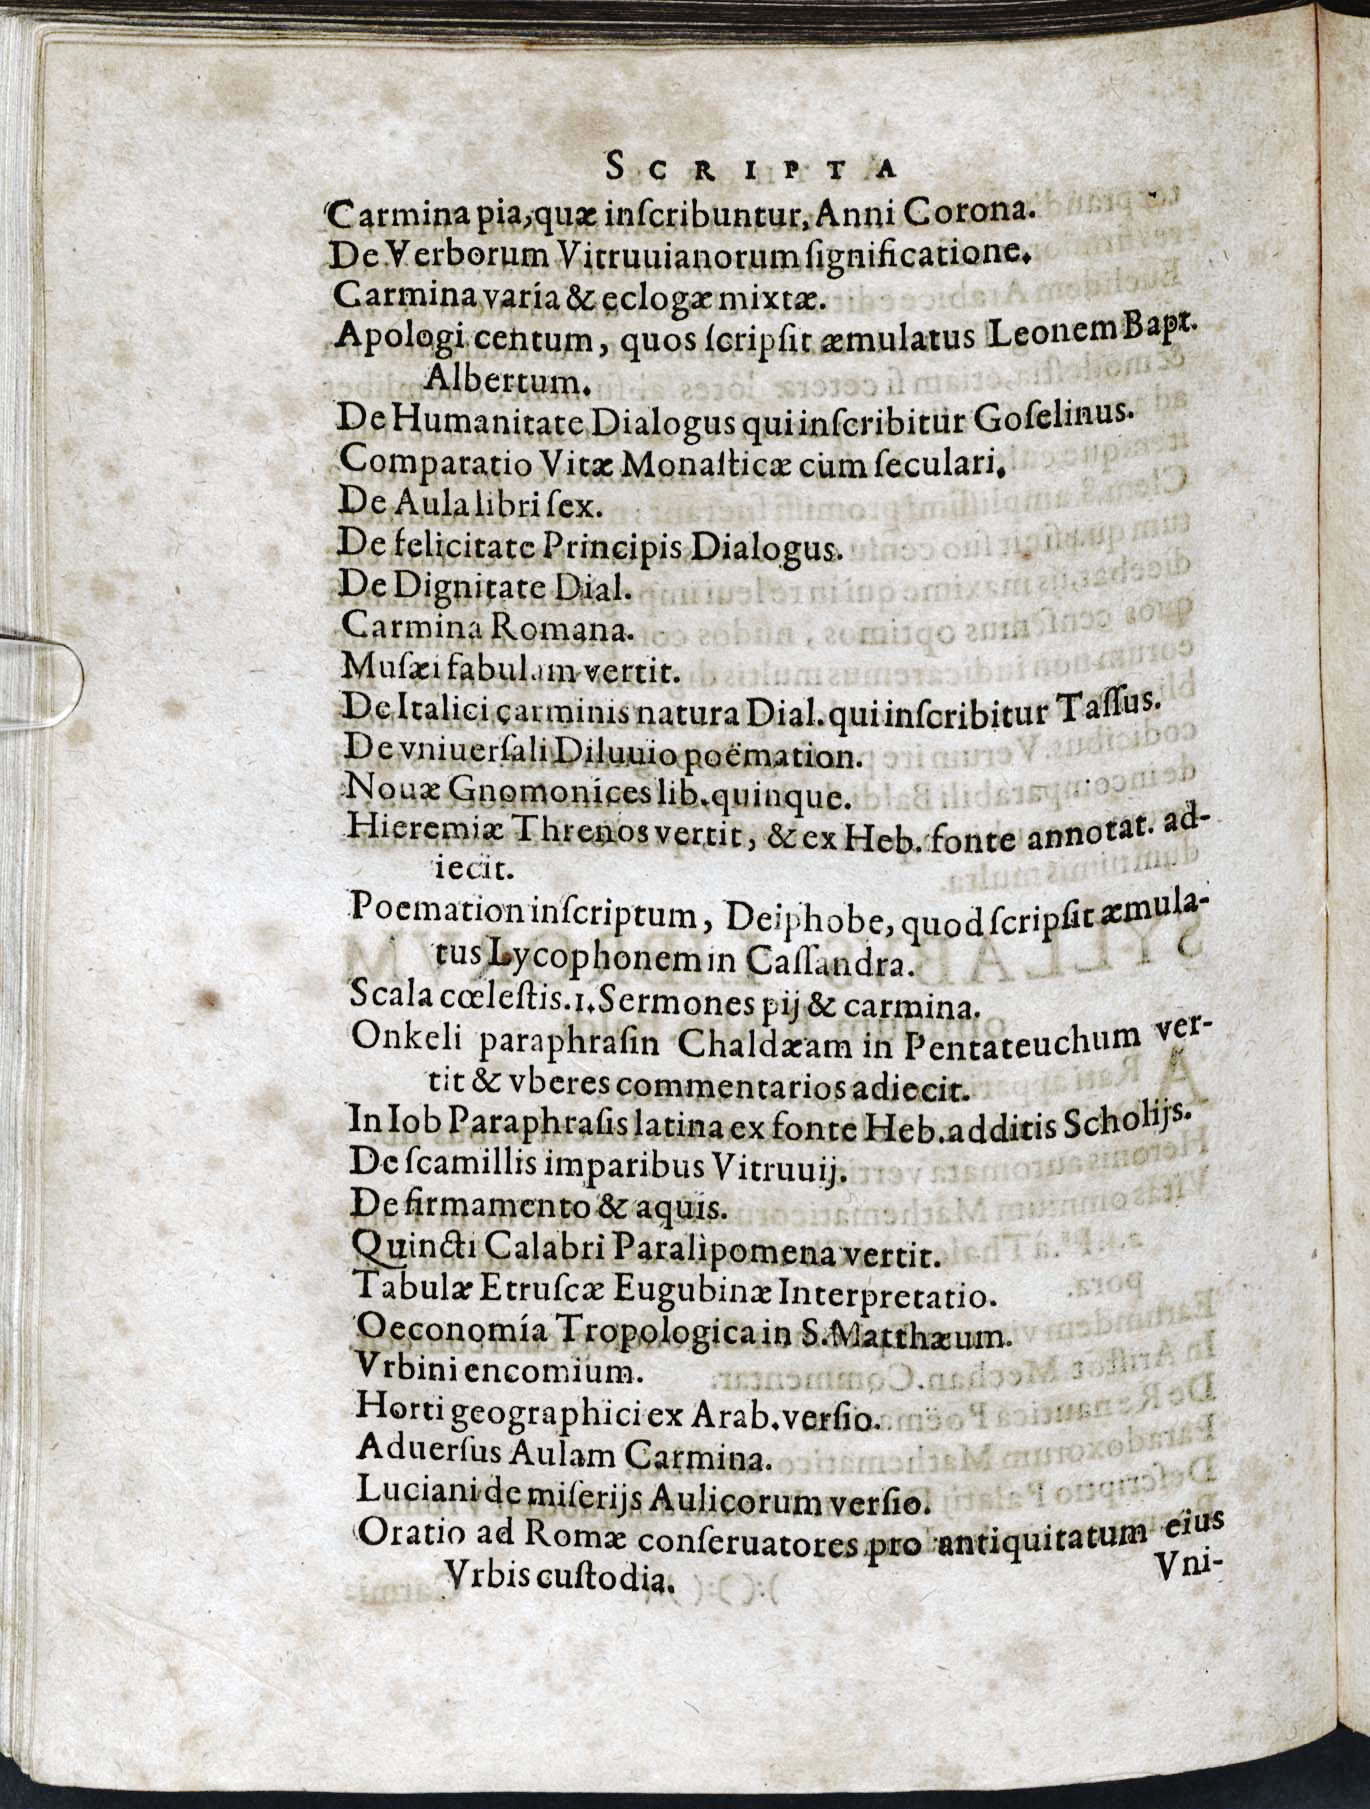 SCRIPTA
Carmina pia, quæ inſcribuntur, Anni Corona.
De Verborum Vitruuianorum ſignificatione.
Carmina varia & eclogæ mixtæ.
Apologi centum, quos ſcripſit æmulatus Leonem Bapt.
Albertum.
De Humanitate Dialogus qui inſcribitur Goſelinus.
Comparatio Vitæ Monaſticæ cum ſeculari.
De Aula libri ſex.
De felicitate Principis Dialogus.
De Dignitate Dial.
Carmina Romana.
Muſæi fabulam vertit.
De Italici carminis natura Dial. qui inſcribitur Taſſus.
De vniuerſali Diluuio poëmation.
Nouæ Gnomonices lib. quinque.
Hieremiæ Threnos vertit, & ex Heb. fonte annotat. ad-
iecit.
Poemation inſcriptum, Deiphobe, quod ſcripſit æmula-
tus Lycophonem in Caſſandra.
Scala cœleſtis. 1. Sermones pij & carmina.
Onkeli paraphraſin Chaldæam in Pentateuchum ver-
tit & vberes commentarios adiecit.
In Iob Paraphraſis latina ex fonte Heb. additis Scholijs.
De ſcamillis imparibus Vitruuij.
De firmamento & aquis.
Quincti Calabri Paralipomena vertit.
Tabulæ Etruſcæ Eugubinæ Interpretatio.
Oeconomía Tropologica in S. Matthæum.
Vrbini encomium.
Horti geographici ex Arab. verſio.
Aduerſus Aulam Carmina.
Luciani de miſerijs Aulicorum verſio.
Oratio ad Romæ conſeruatores pro antiquitatum eius
Vrbis cuſtodia.
Vni-